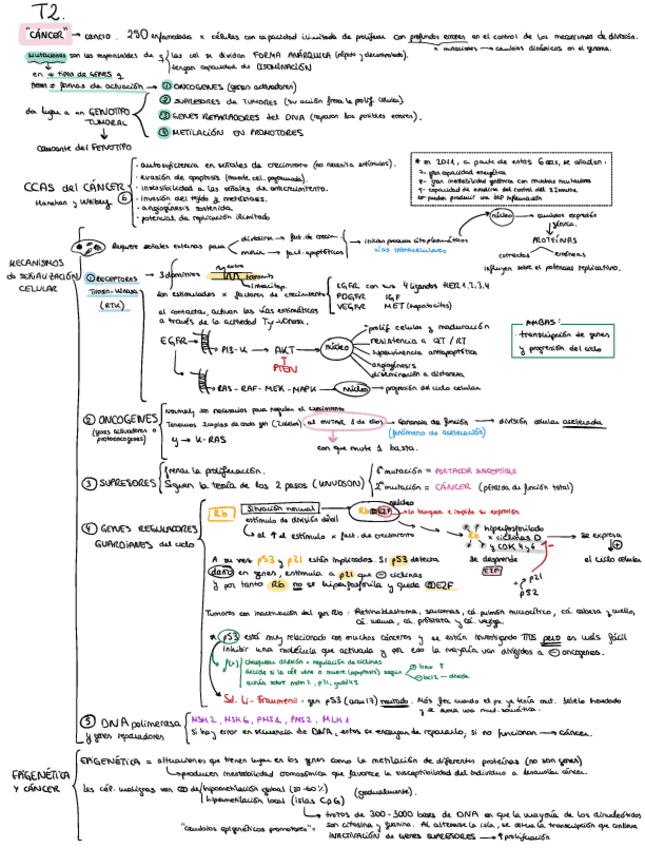 T2.
"CÁNCER" → cancro. 290 enfermedades x células con capacidad ilimitada de proliferar con profundos errores en el control de los mecanismos de división.
x mutaciones → cambios dinámicos en el genoma.
Mutaciones son las responsables de q
las cel se dividan FORMA ANÁRQUICA (rápida y descontrolada).
tengan capacidad de DISEMINACIÓN
en ≠ tipos de GENES y
≠ formas de actuación →
① ONCOGENES (genes activadores)
② SUPRESORES DE TUMORES (su acción frena la prolif. celular).
③ GENES REPARADORES del DNA (reparan los posibles errores).
④ METILACIÓN EN PROMOTORES
da lugar a un GENOTIPO TUMORAL
cambiante del FENOTIPO
CCAS del CÁNCER
Hanahan y Weinberg ⑥
· autosuficiencia en señales de crecimiento (no necesita estímulos).
· evasión de apoptosis (muerte cel. programada).
· insensibilidad a las señales de anticrecimiento.
· invasión del tejido y metástasis.
· angiogénesis sostenida
· potencial de replicación ilimitado
* en 2011, a parte de estas 6 ccas, se añaden:
7- gran capacidad energética
8- gran inestabilidad genómica con muchas mutaciones
9- capacidad de evadirse del control del S Inmune
10- pueden producir una rep inflamación
MECANISMOS de SEÑALIZACIÓN CELULAR
Requiere señales externas para
dividirse → fact. de crecim.
morir → fact. apoptóticos
inician procesos citoplasmáticos
vías intracelulares
núcleo → cambios expresión génica.
PROTEÍNAS
correctas
erróneas
influyen sobre el potencial replicativo.
① RECEPTORES Tirosín-kinasa (RTK)
→ 3 dominios
extra
transmb
intracitop.
son estimulados x factores de crecimiento
EGFR con sus 4 ligandos HER 1,2,3,4
PDGFR IGF
VEGFR MET (hepatocitos)
al contactar, activan las vías enzimáticas
a través de la actividad Tyr-kinasa.
EGFR
→ PI3-K → AKT → núcleo
PTEN
→ prolif celular y maduración
→ resistencia a QT / RT
→ supervivencia antiapoptótica
→ angiogénesis
→ diseminación a distancia
→ RAS-RAF-MEK-MAPK → núcleo → progresión del ciclo celular
AMBAS:
· transcripción de genes
y progresión del ciclo
② ONCOGENES
(genes activadores o protooncogenes)
Normal, son necesarios para regular el crecimiento
Tenemos 2 copias de cada gen (2 alelos). al MUTAR 1 de ellos → Ganancia de función → división celular acelerada
(fenómeno de aceleración)
ej → K-RAS
con que mute 1 basta.
③ SUPRESORES
frenar la proliferación.
Siguen la teoría de los 2 pasos (KNUDSON)
1ª mutación = PORTADOR SUSCEPTIBLE
2ª mutación = CÁNCER (pérdida de función total)
④ GENES REGULADORES
GUARDIANES del ciclo
Rb
Situación normal → Rb E2F
núcleo
lo bloquea e impide su expresión
estímulo de división debil
al ↑ el estímulo x fact. de crecimiento
Rb
hiperfosforilado
x ciclinas D
y CDK 4 y 6
se desprende E2F
→ se expresa
⊕
el ciclo celular
p21
p52
A su vez p53 y p21 están implicados. Si p53 detecta
daño en genes, estimula a p21 que ⊖ ciclinas
y por tanto Rb no se hiperfosforila y queda E2F
Tumores con inactivación del gen Rb: Retinoblastoma, sarcomas, cá. pulmón microcítico, cá. cabeza y cuello,
cá. mama, cá. próstata y cá. vejiga.
* p53 está muy relacionado con muchos cánceres y se están investigando TTOS pero es más fácil
inhibir una molécula que activarla y por eso la mayoría van dirigidos a ⊖ oncogenes.
f(x)
chequean división + regulación de ciclinas
decide si la cél vive o muere (apoptosis) según
⊕ bax ↑
⊖ bcl2
actúa sobre mdm2, p21, gadd45
Sd. Li-Fraumeni - gen p53 (crom 17) mutado. Más frec cuando el px ya tenía mut. alelo heredado
y se suma una mut. somática.
⑤ DNA polimerasa
y genes reparadores
MSH2, MSH6, PMS1, PMS2, MLH1
Si hay error en secuencia de DNA, estos se encargan de repararlo, si no funcionan → cáncer.
EPIGENÉTICA Y CÁNCER
EPIGENÉTICA = alteraciones que tienen lugar en los genes como la metilación de diferentes proteínas (no son genes)
→ producen inestabilidad cromosómica que favorece la susceptibilidad del individuo a desarrollar cáncer.
las cél. malignas van de
hipometilación global (20-60%)
hipermetilación local (islas CpG)
(gradualmente).
→ trozos de 300-3000 bases de DNA en que la mayoría de los dinucleótidos
son citosina y guanina. Al alterarse la isla, se altera la transcripción que conlleva
INACTIVACIÓN DE GENES SUPRESORES → ↑ proliferación
"cambios epigenéticos promotores"